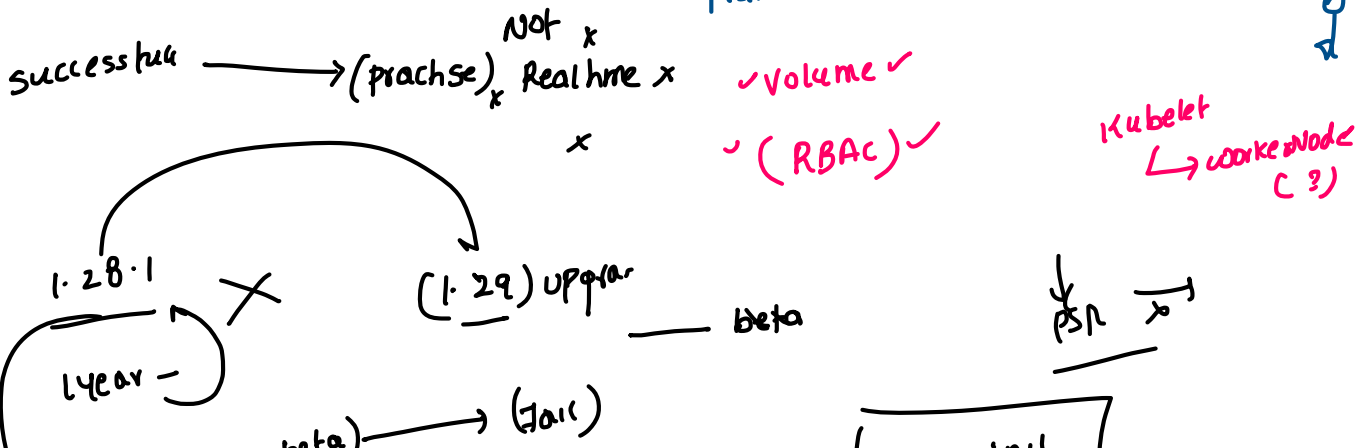 Not x
successful (prachse) x Realtime x
✓ volume ✓
x
✓ (RBAC) ✓
Kubelet
workerNode
(?)
1.28.1
(1.29) upgrar
beta
1year -
(Fail)
beta)